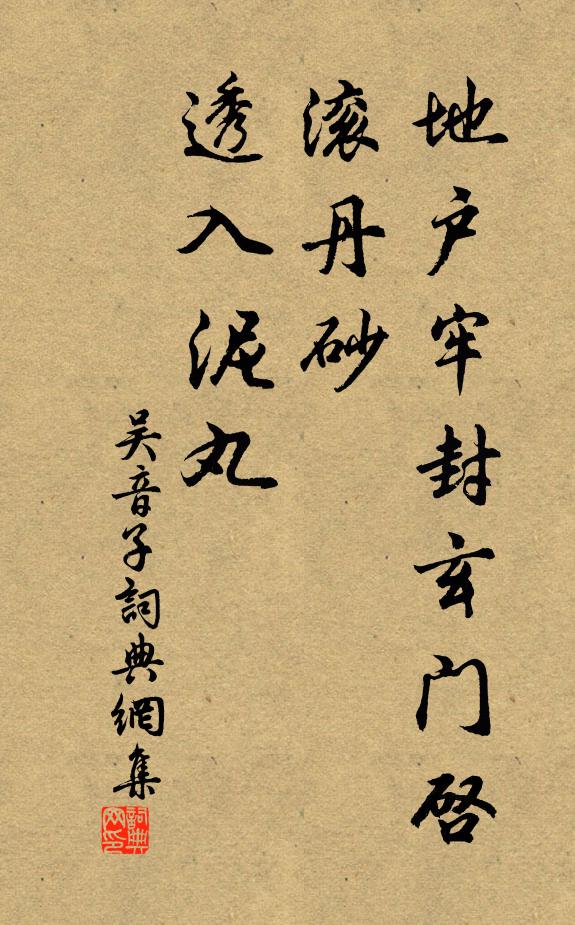 地户牢封玄门启
滚丹砂
透入泥丸
吴音子詞典網集
詞典网印